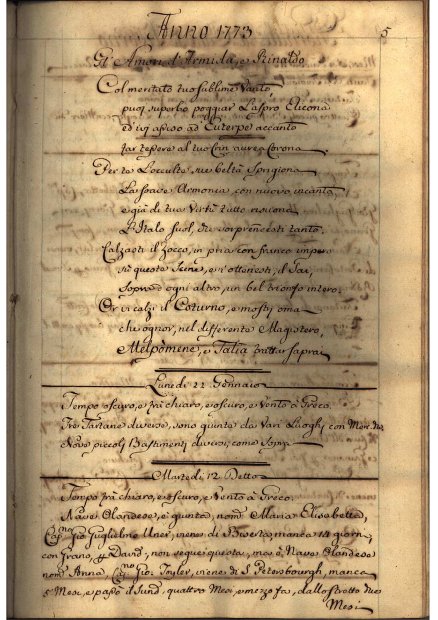 Anno 1773
5
Gl' Amori d'Armida, e Rinaldo
Col meritato tuo sublime Vanto,
puoi superbo poggiar l'aspro Elicona
ed ivi assiso ad Euterpe accanto
far tessere al tuo Crin aurea Corona
Per te l'occulte sue beltà sprigiona
La soave Armonia con nuovo incanto
e già di tua Virtù tutto risuona
L'Italo suol, che sorprendesti tanto.
Calzasti il Zocco, in pria con franco impero
su queste Scene, e n'ottenesti, il sai,
sopra d'ogni altro, un bel trionfo intero.
Or vi calzi il Coturno, e mostri omai
ch'ognor, nel differente Magistero,
Melpomene, e Talia trattar saprai
Lunedì 11 Gennaio
Tempo oscuro, e frà chiaro, e oscuro, e Vento à Greco.
Tre Tartane diverse, sono giunte da Vari Luoghi con Merci due
Nove piccoli Bastimenti diversi, come Sopra
Martedì 12 Detto
Tempo frà chiaro, e oscuro, e Vento à Greco.
Nave Olandese, è giunta, nom. Maria Elisabetta,
Cap.no Gio Guglielmo, viene di Biserta manca 14 giorni
con Grano, p. David, non segue questa, mes. è Nave Olandese
nom. Anna, Cap.no Gio. Toyler, viene di S. Petersbourgh, manca
5 Mesi, e passò il Sund, quattro Mesi, e mezzo fa, dallo stretto due
Mesi